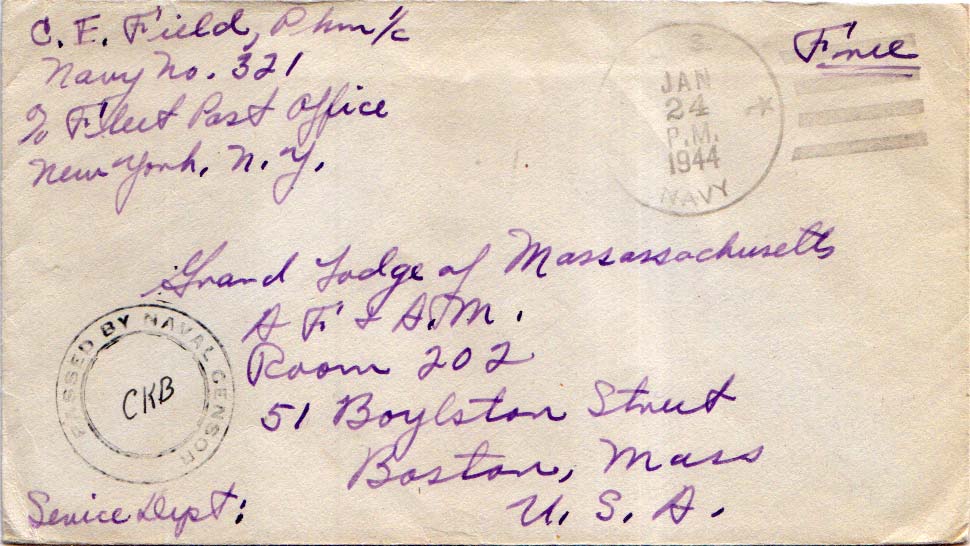 C. E. Field, Phm 1/c
Navy No. 321
c/o Fleet Post Office
New York, N. Y.
Free
U.S.
JAN
24
P.M.
1944
NAVY
Grand Lodge of Massassachusetts
A F. & A.M.
Room 202
51 Boylston Street
Boston, Mass
U. S. A.
PASSED BY NAVAL CENSOR
CKB
Service Dept: